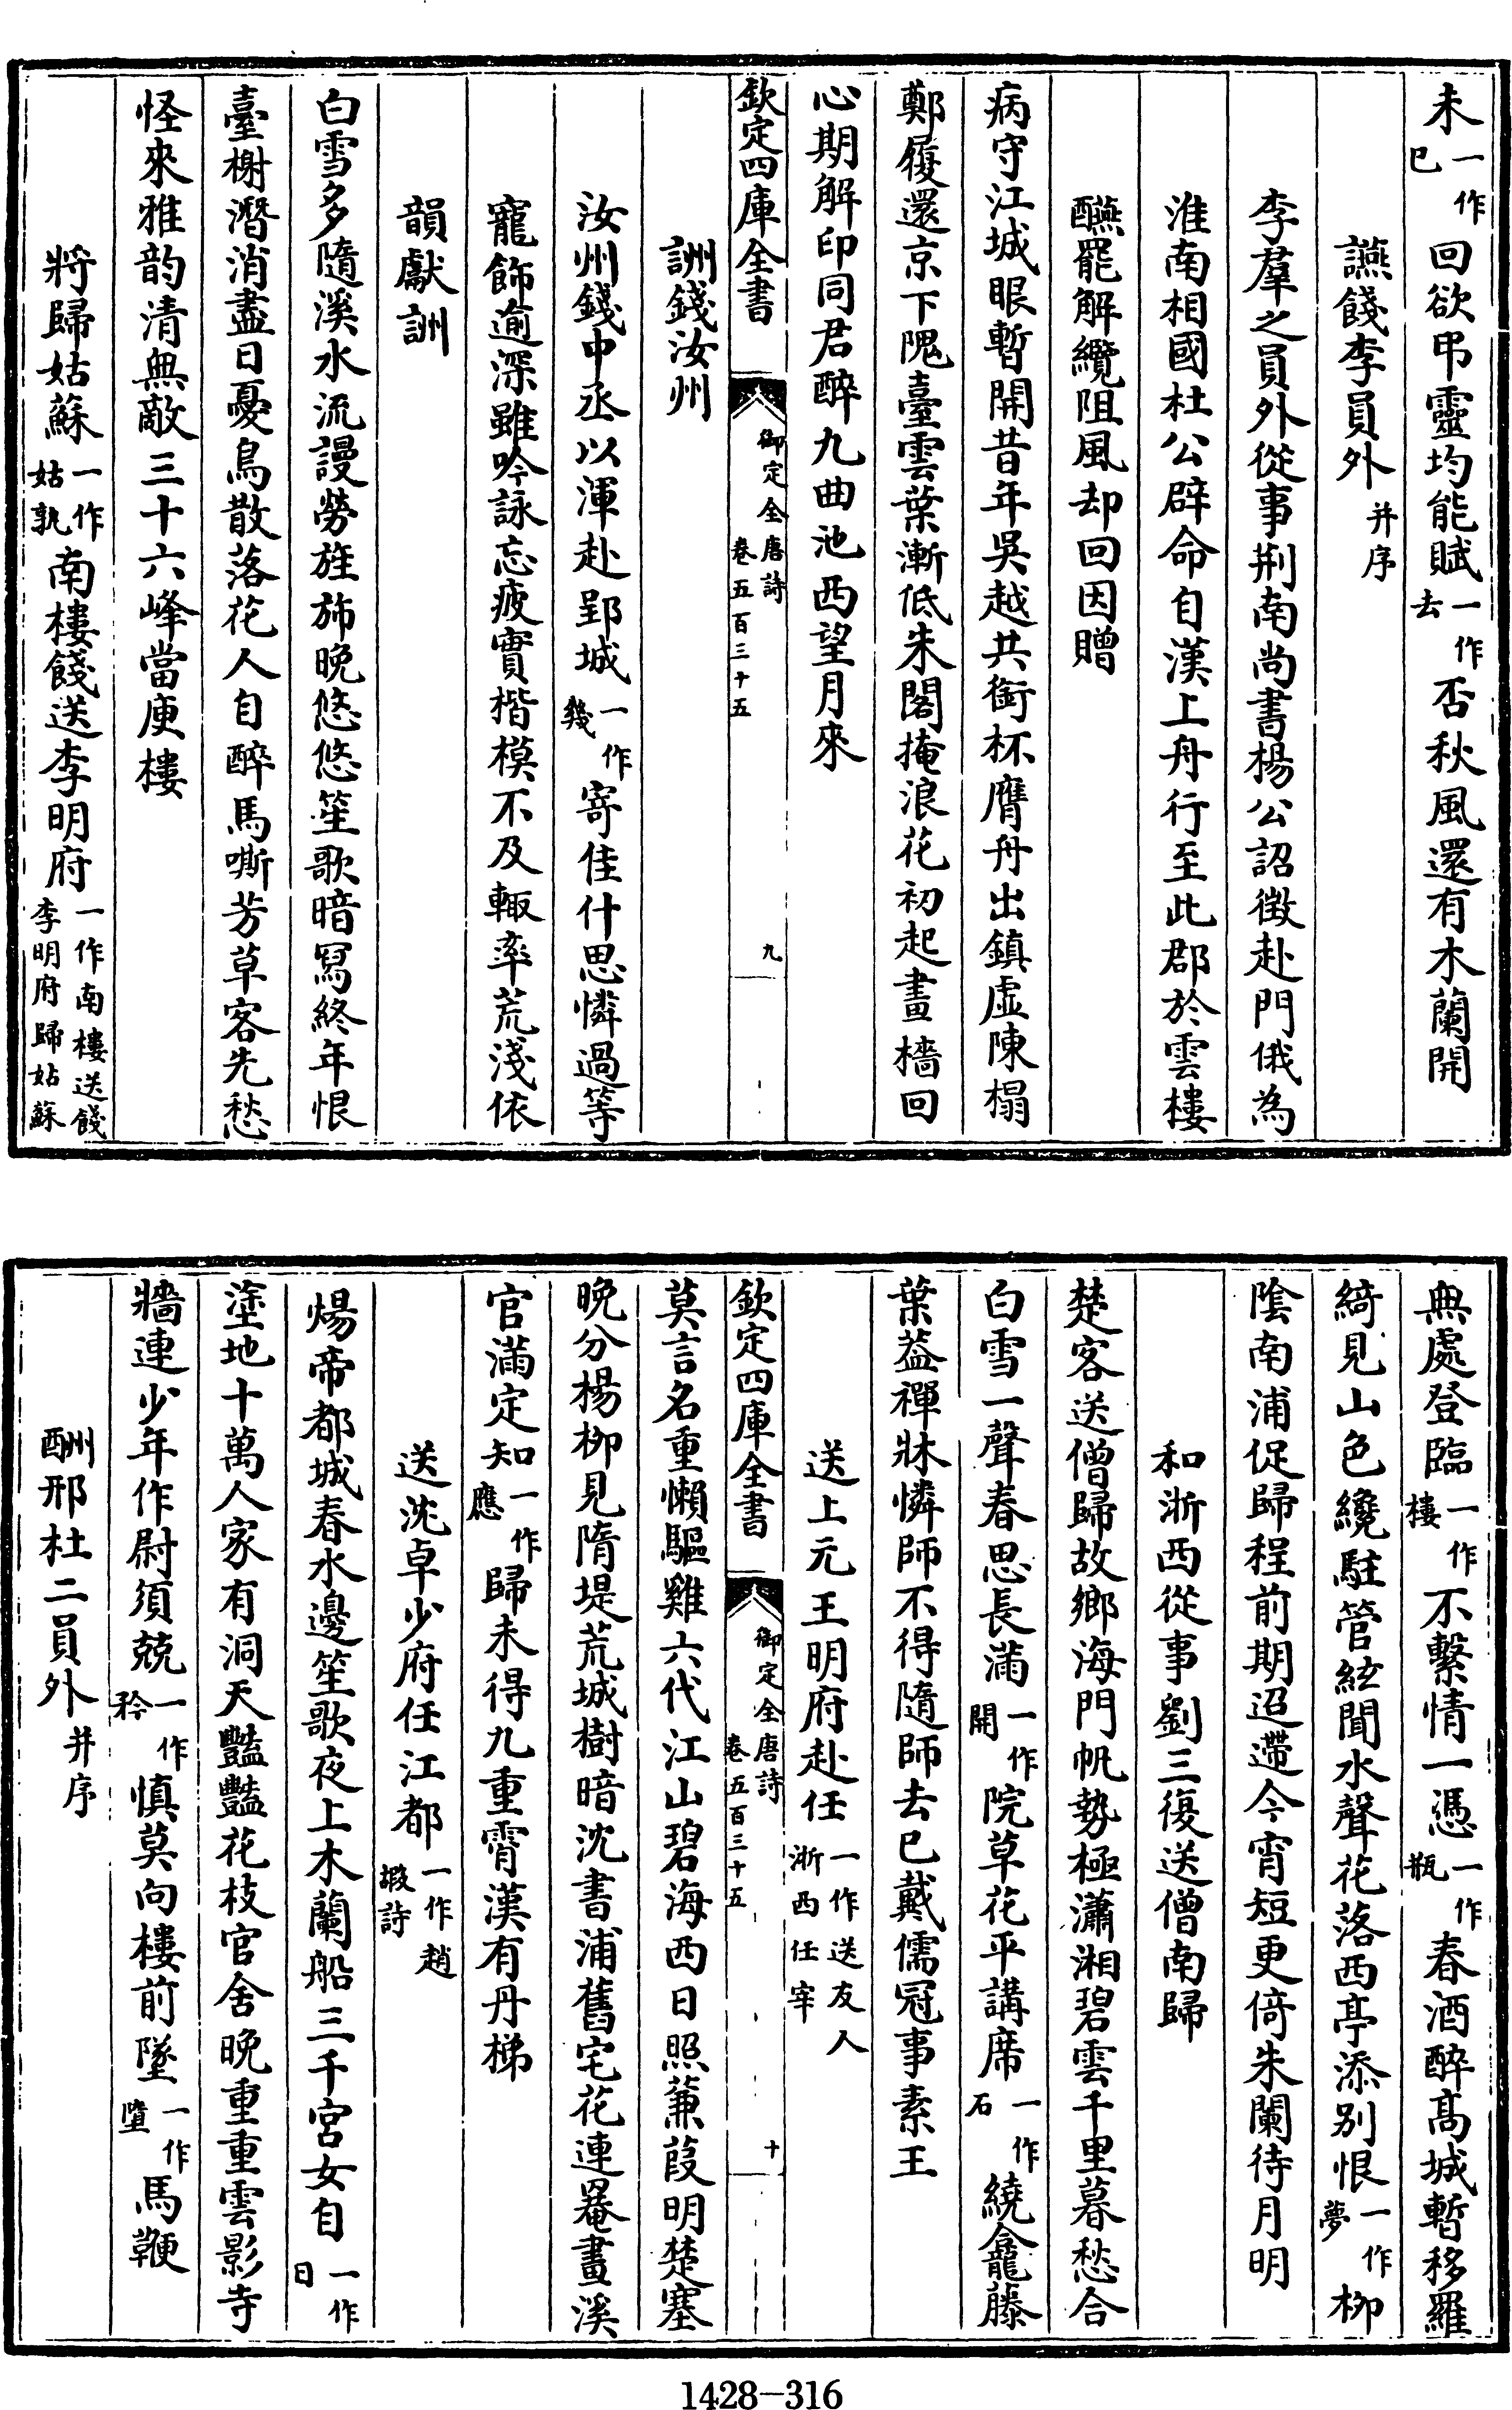 未一作巳回欲弔靈均能賦一作去否秋風還有木蘭開
讌餞李員外并序
李羣之員外從事荆南尚書楊公詔徴赴門俄為
淮南相國杜公辟命自漢上舟行至此郡於雲樓
醼罷解纜阻風却回因贈
病守江城眼暫開昔年吳越共銜杯膺舟出鎮虛陳榻
鄭履還京下隗臺雲葉漸低朱閣掩浪花初起畫檣回
心期解印同君醉九曲池西望月來
欽定四庫全書 御定全唐詩 卷五百三十五 九
詶錢汝州
汝州錢中丞以渾赴郢城一作幾寄佳什思憐過等
寵飾逾深雖吟詠忘疲實楷模不及輙率荒淺依
韻獻詶
白雪多隨溪水流謾勞旌斾晚悠悠笙歌暗冩終年恨
臺榭潛消盡日憂鳥散落花人自醉馬嘶芳草客先愁
怪來雅韵清無敵三十六峰當庾樓
將歸姑蘇一作姑孰南樓餞送李明府一作南樓送餞李明府歸姑蘇
無處登臨一作樓不繫情一憑一作瓶春酒醉髙城暫移羅
綺見山色纔駐管絃聞水聲花落西亭添别恨一作夢柳
隂南浦促歸程前期迢遰今宵短更倚朱闌待月明
和浙西從事劉三復送僧南歸
楚客送僧歸故鄉海門帆勢極瀟湘碧雲千里暮愁合
白雪一聲春思長滿一作開院草花平講席一作石繞龕藤
葉葢禪牀憐師不得隨師去巳戴儒冠事素王
送上元王明府赴任一作送友人浙西任宰
欽定四庫全書 御定全唐詩 卷五百三十五 十
莫言名重懶驅雞六代江山碧海西日照蒹葭明楚塞
晚分楊柳見隋堤荒城樹暗沈書浦舊宅花連罨畫溪
官滿定知一作應歸未得九重霄漢有丹梯
送沈卓少府任江都一作趙嘏詩
煬帝都城春水邊笙歌夜上木蘭船三千宮女自一作日
塗地十萬人家有洞天豔豔花枝官舍晚重重雲影寺
牆連少年作尉須兢一作矜慎莫向樓前墜一作墮馬鞭
酬邢杜二員外并序
1428-316